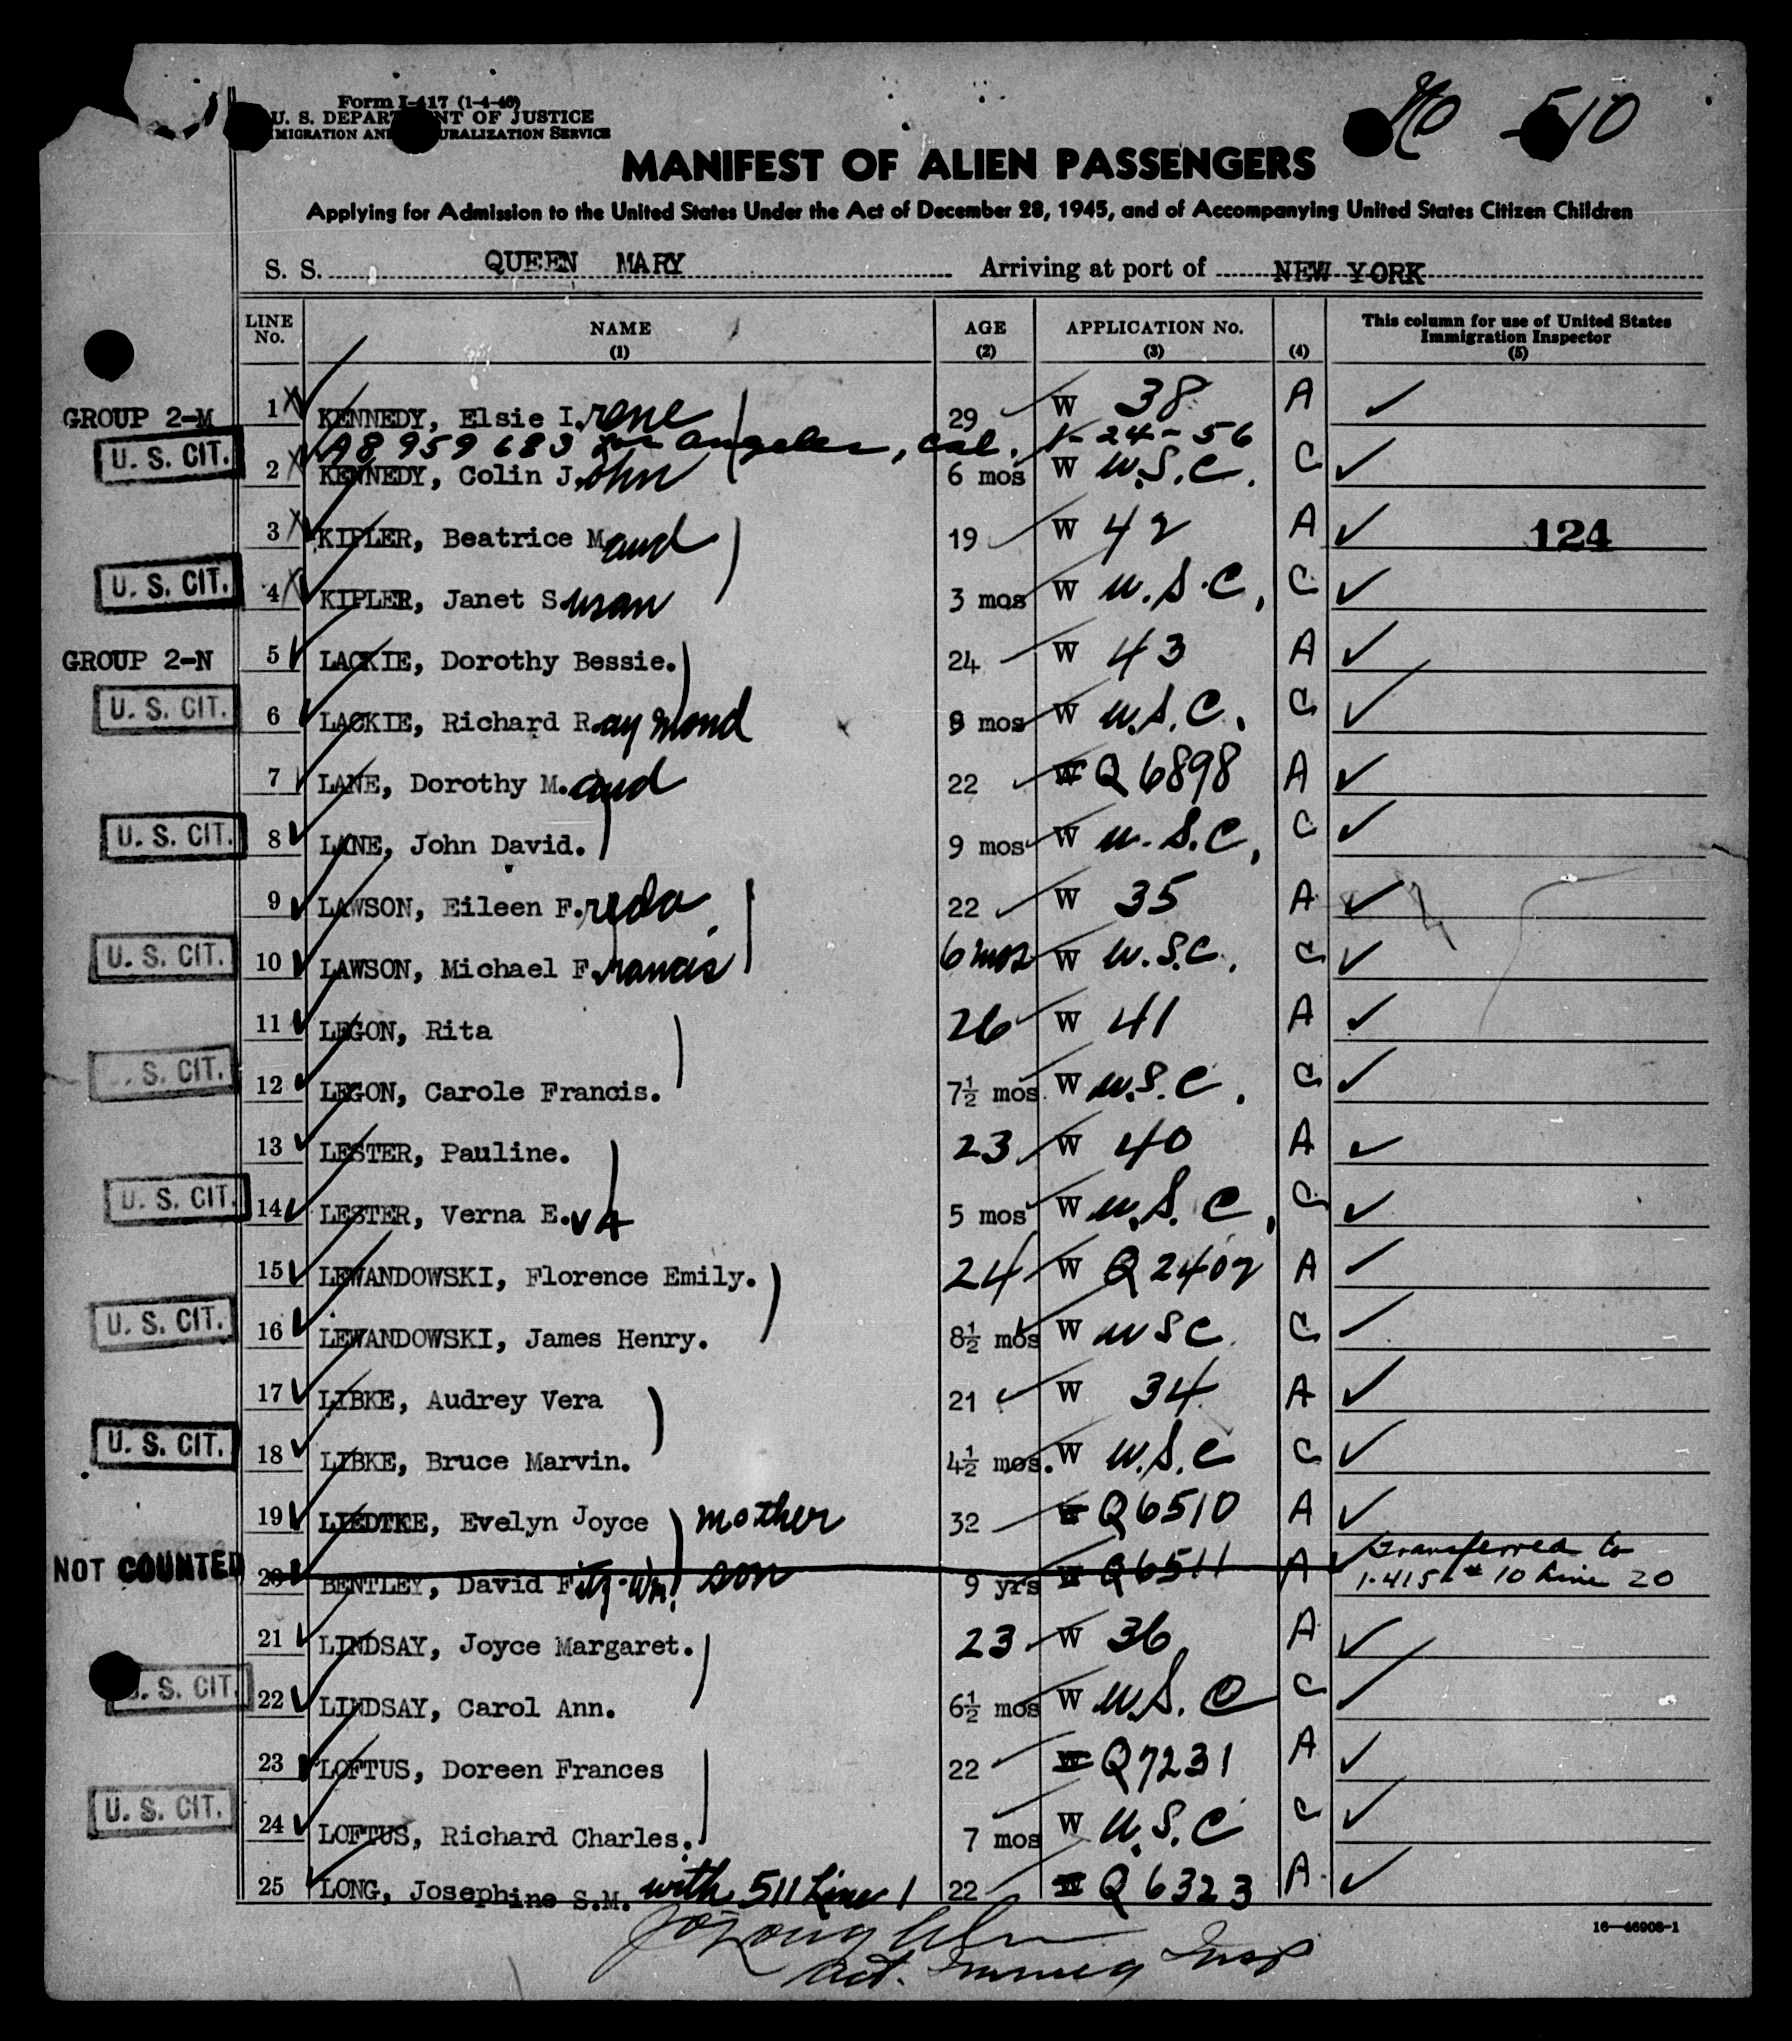 Form I-417 (1-4-46)
U. S. DEPARTMENT OF JUSTICE
IMMIGRATION AND NATURALIZATION SERVICE
No 510
MANIFEST OF ALIEN PASSENGERS
Applying for Admission to the United States Under the Act of December 28, 1945, and of Accompanying United States Citizen Children
S. S. QUEEN MARY Arriving at port of NEW YORK
LINE No. NAME (1) AGE (2) APPLICATION No. (3) (4) This column for use of United States Immigration Inspector (5)
GROUP 2-M 1 KENNEDY, Elsie I.rene 29 W 38 A
A8 959 683 Los Angeles, Cal. 1-24-56
U. S. CIT. 2 KENNEDY, Colin J.ohn 6 mos W U.S.C. C
3 KIPLER, Beatrice Maud 19 W 42 A 124
U. S. CIT. 4 KIPLER, Janet Susan 3 mos W U.S.C. C
GROUP 2-N 5 LACKIE, Dorothy Bessie. 24 W 43 A
U. S. CIT. 6 LACKIE, Richard R.aymond 9 mos W U.S.C. C
7 LANE, Dorothy M.aud 22 W Q 6898 A
U. S. CIT. 8 LANE, John David. 9 mos W U.S.C. C
9 LAWSON, Eileen F.reda 22 W 35 A
U. S. CIT. 10 LAWSON, Michael F.rancis 6 mos W U.S.C. C
11 LEGON, Rita 26 W 41 A
. S. CIT. 12 LEGON, Carole Francis. 7½ mos. W U.S.C. C
13 LESTER, Pauline. 23 W 40 A
U. S. CIT. 14 LESTER, Verna E.va 5 mos W U.S.C. C
15 LEWANDOWSKI, Florence Emily. 24 W Q 2402 A
U. S. CIT. 16 LEWANDOWSKI, James Henry. 8½ mos W USC. C
17 LIBKE, Audrey Vera 21 W 34 A
U. S. CIT. 18 LIBKE, Bruce Marvin. 4½ mos. W U.S.C C
19 LIEDTKE, Evelyn Joyce mother 32 W Q6510 A
NOT COUNTED 20 BENTLEY, David Fitz-Wm. son 9 yrs W Q6511 A Transferred to
I-415 # 10 Line 20
21 LINDSAY, Joyce Margaret. 23 W 36 A
U. S. CIT. 22 LINDSAY, Carol Ann. 6½ mos W U.S.C C
23 LOFTUS, Doreen Frances 22 W Q7231 A
U. S. CIT. 24 LOFTUS, Richard Charles. 7 mos W U.S.C C
25 LONG, Josephine S.M. with 511 Line 1 22 W Q 6323 A
16-46908-1
Act. Immig Insp